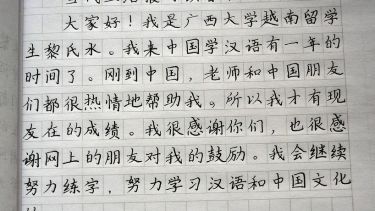 大家好！我是广西大学越南留学
生黎氏水。我来中国学汉语有一年的
时间了。刚到中国，老师和中国朋友
们都很热情地帮助我。所以我才有现
友在的成绩。我很感谢你们，也很感
谢网上的朋友对我的鼓励。我会继续
努力练字，努力学习汉语和中国文化